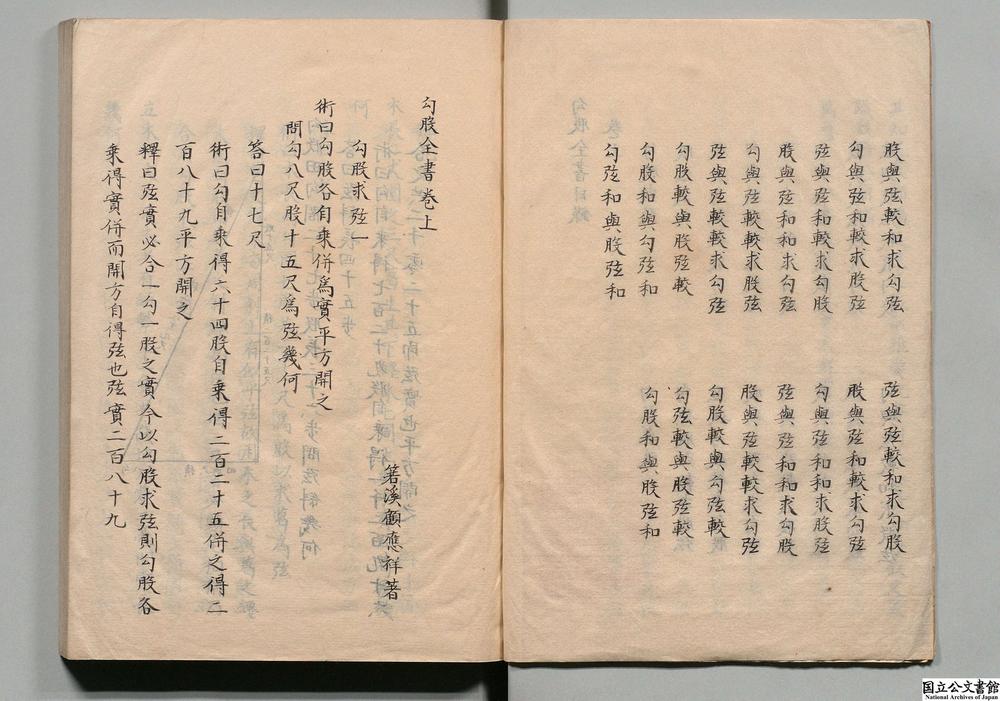 股與弦較和求勾弦　弦與弦較和求勾股
勾與弦和較求股弦　股與弦和較求勾弦
弦與弦和較求勾股　勾與弦和和求股弦
股與弦和和求勾弦　弦與弦和和求勾股
勾與弦較較求股弦　股與弦較較求勾弦
弦與弦較較求勾弦　勾股較與勾弦較
勾股較與股弦較　勾弦較與股弦較
勾股和與勾弦和　勾股和與股弦和
勾弦和與股弦和
勾股全書卷上
箬溪顧應祥著
勾股求弦一
術曰勾股各自乘併爲實平方開之
問勾八尺股十五尺爲弦幾何
答曰十七尺
術曰勾自乘得六十四股自乘得二百二十五併之得二
百八十九平方開之
釋曰弦實必合一勾一股之實今以勾股求弦則勾股各
乘得實併而開方自得弦也弦實二百八十九
国立公文書館
National Archives of Japan